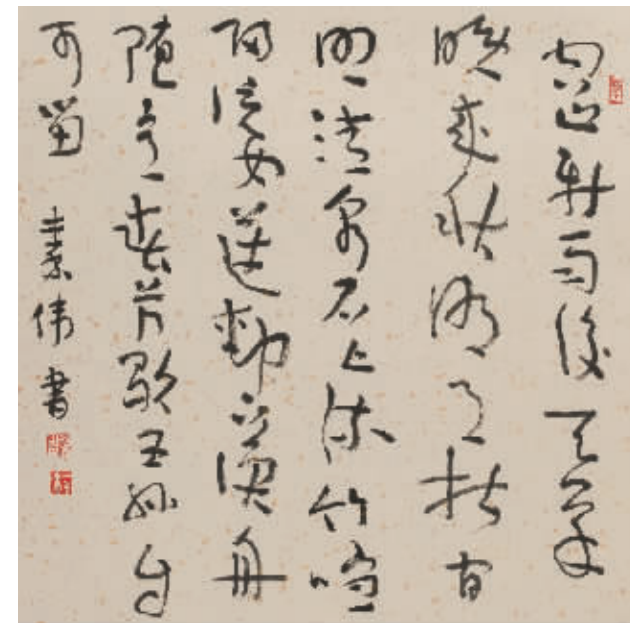 空山新雨後天氣
晚來秋明月松間
照清泉石上流竹喧
歸浣女蓮動下漁舟
隨意春芳歇王孫自
可留 素伟書